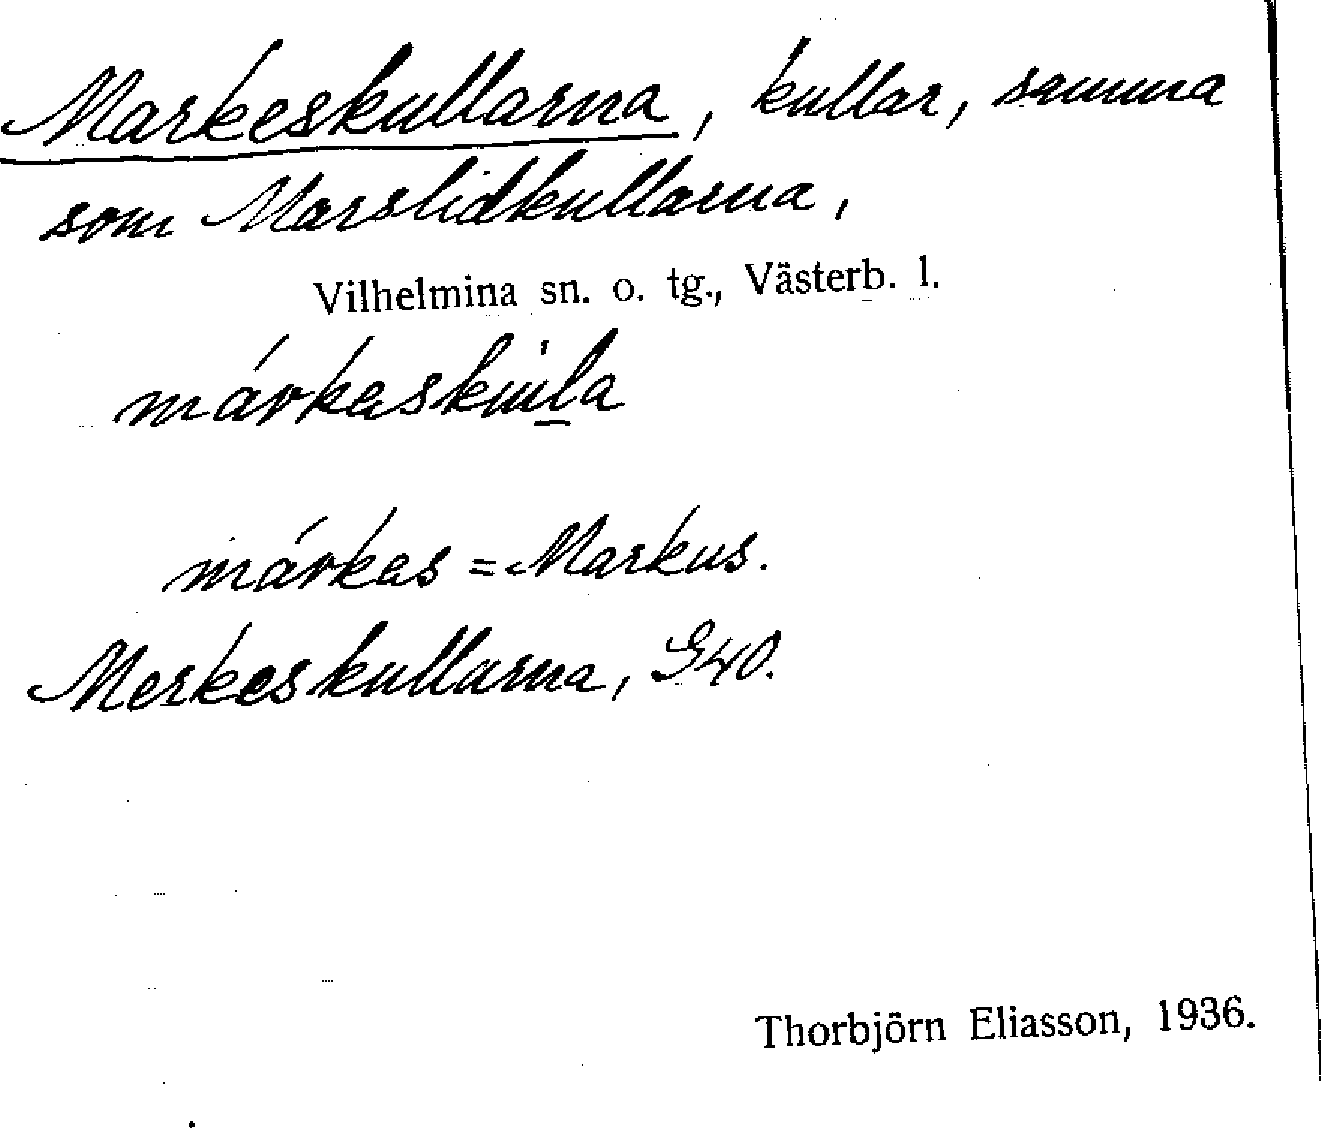 Markeskullarna, kullar, samma
som Marslidkullarna,
Vilhelmina sn. o. tg., Västerb. l.
márkas = Markus.
Merkeskullarna, G40.
Thorbjörn Eliasson, 1936.